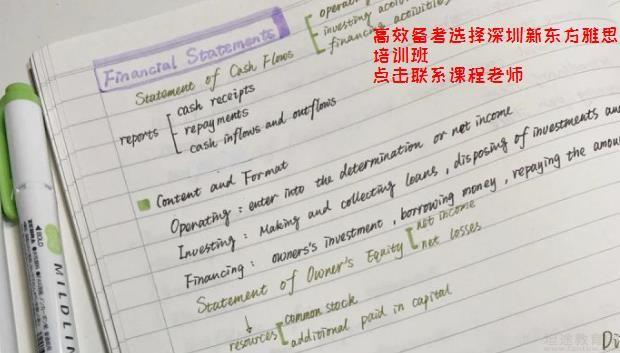 operat
investing activities
financing activities
Financial Statements
Statement of Cash Flows
高效备考选择深圳新东方雅思
培训班
点击联系课程老师
reports
cash receipts
repayments
cash inflows and outflows
Content and Format
Operating : enter into the determination or not income
Investing : Making and collecting loans , disposing of investments and
Financing : owners's investment , borrowing money , repaying the amou
Statement of Owner's Equity
not income
net losses
resources
common stock
additional paid in capital
Di
MILDLIN